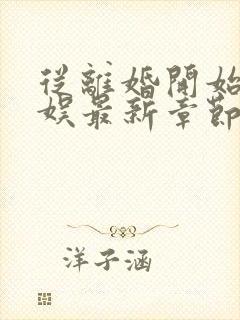 從離婚開始
娛最新章節
洋子涵